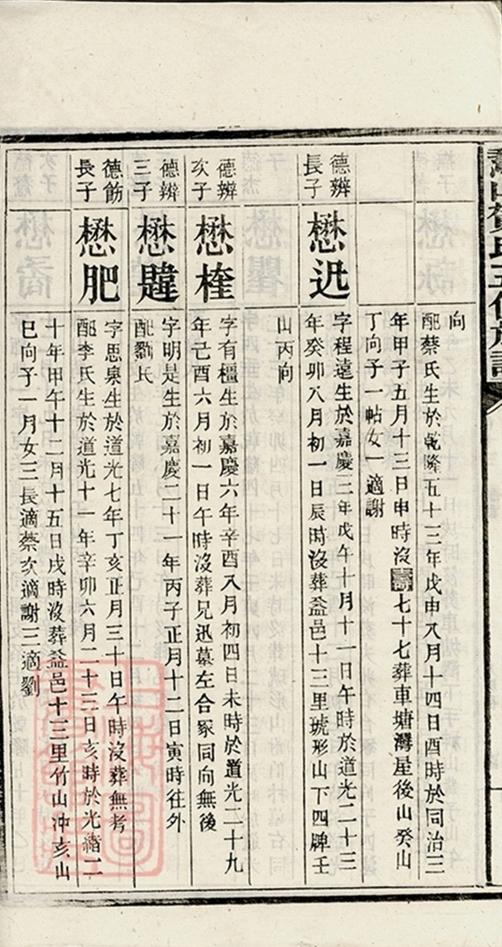 向
配蔡氏生於乾隆五十三年戊申八月十四日酉時於同治三
年甲子五月十三日申時沒壽七十七葬車塘灣屋後山癸山
丁向子一帖女一適謝
德辨
長子
懋迅
字程遠生於嘉慶三年戊午十月十一日午時於道光二十三
年癸卯八月初一日辰時沒葬益邑十三里琥形山下四牌壬
山丙向
德辨
次子
懋權
字有樞生於嘉慶六年辛酉八月初四日未時於道光二十九
年己酉六月初一日午時沒葬兄迅墓左合冢同向無後
德辨
三子
懋韙
字明是生於嘉慶二十一年丙子正月十二日寅時往外
配劉氏
德筋
長子
懋肥
字思泉生於道光七年丁亥正月三十日午時沒葬無考
配李氏生於道光十一年辛卯六月二十三日亥時於光緒二
十年甲午十二月十五日戌時沒葬益邑十三里竹山冲亥山
巳向子一月女三長適蔡次適謝三適劉